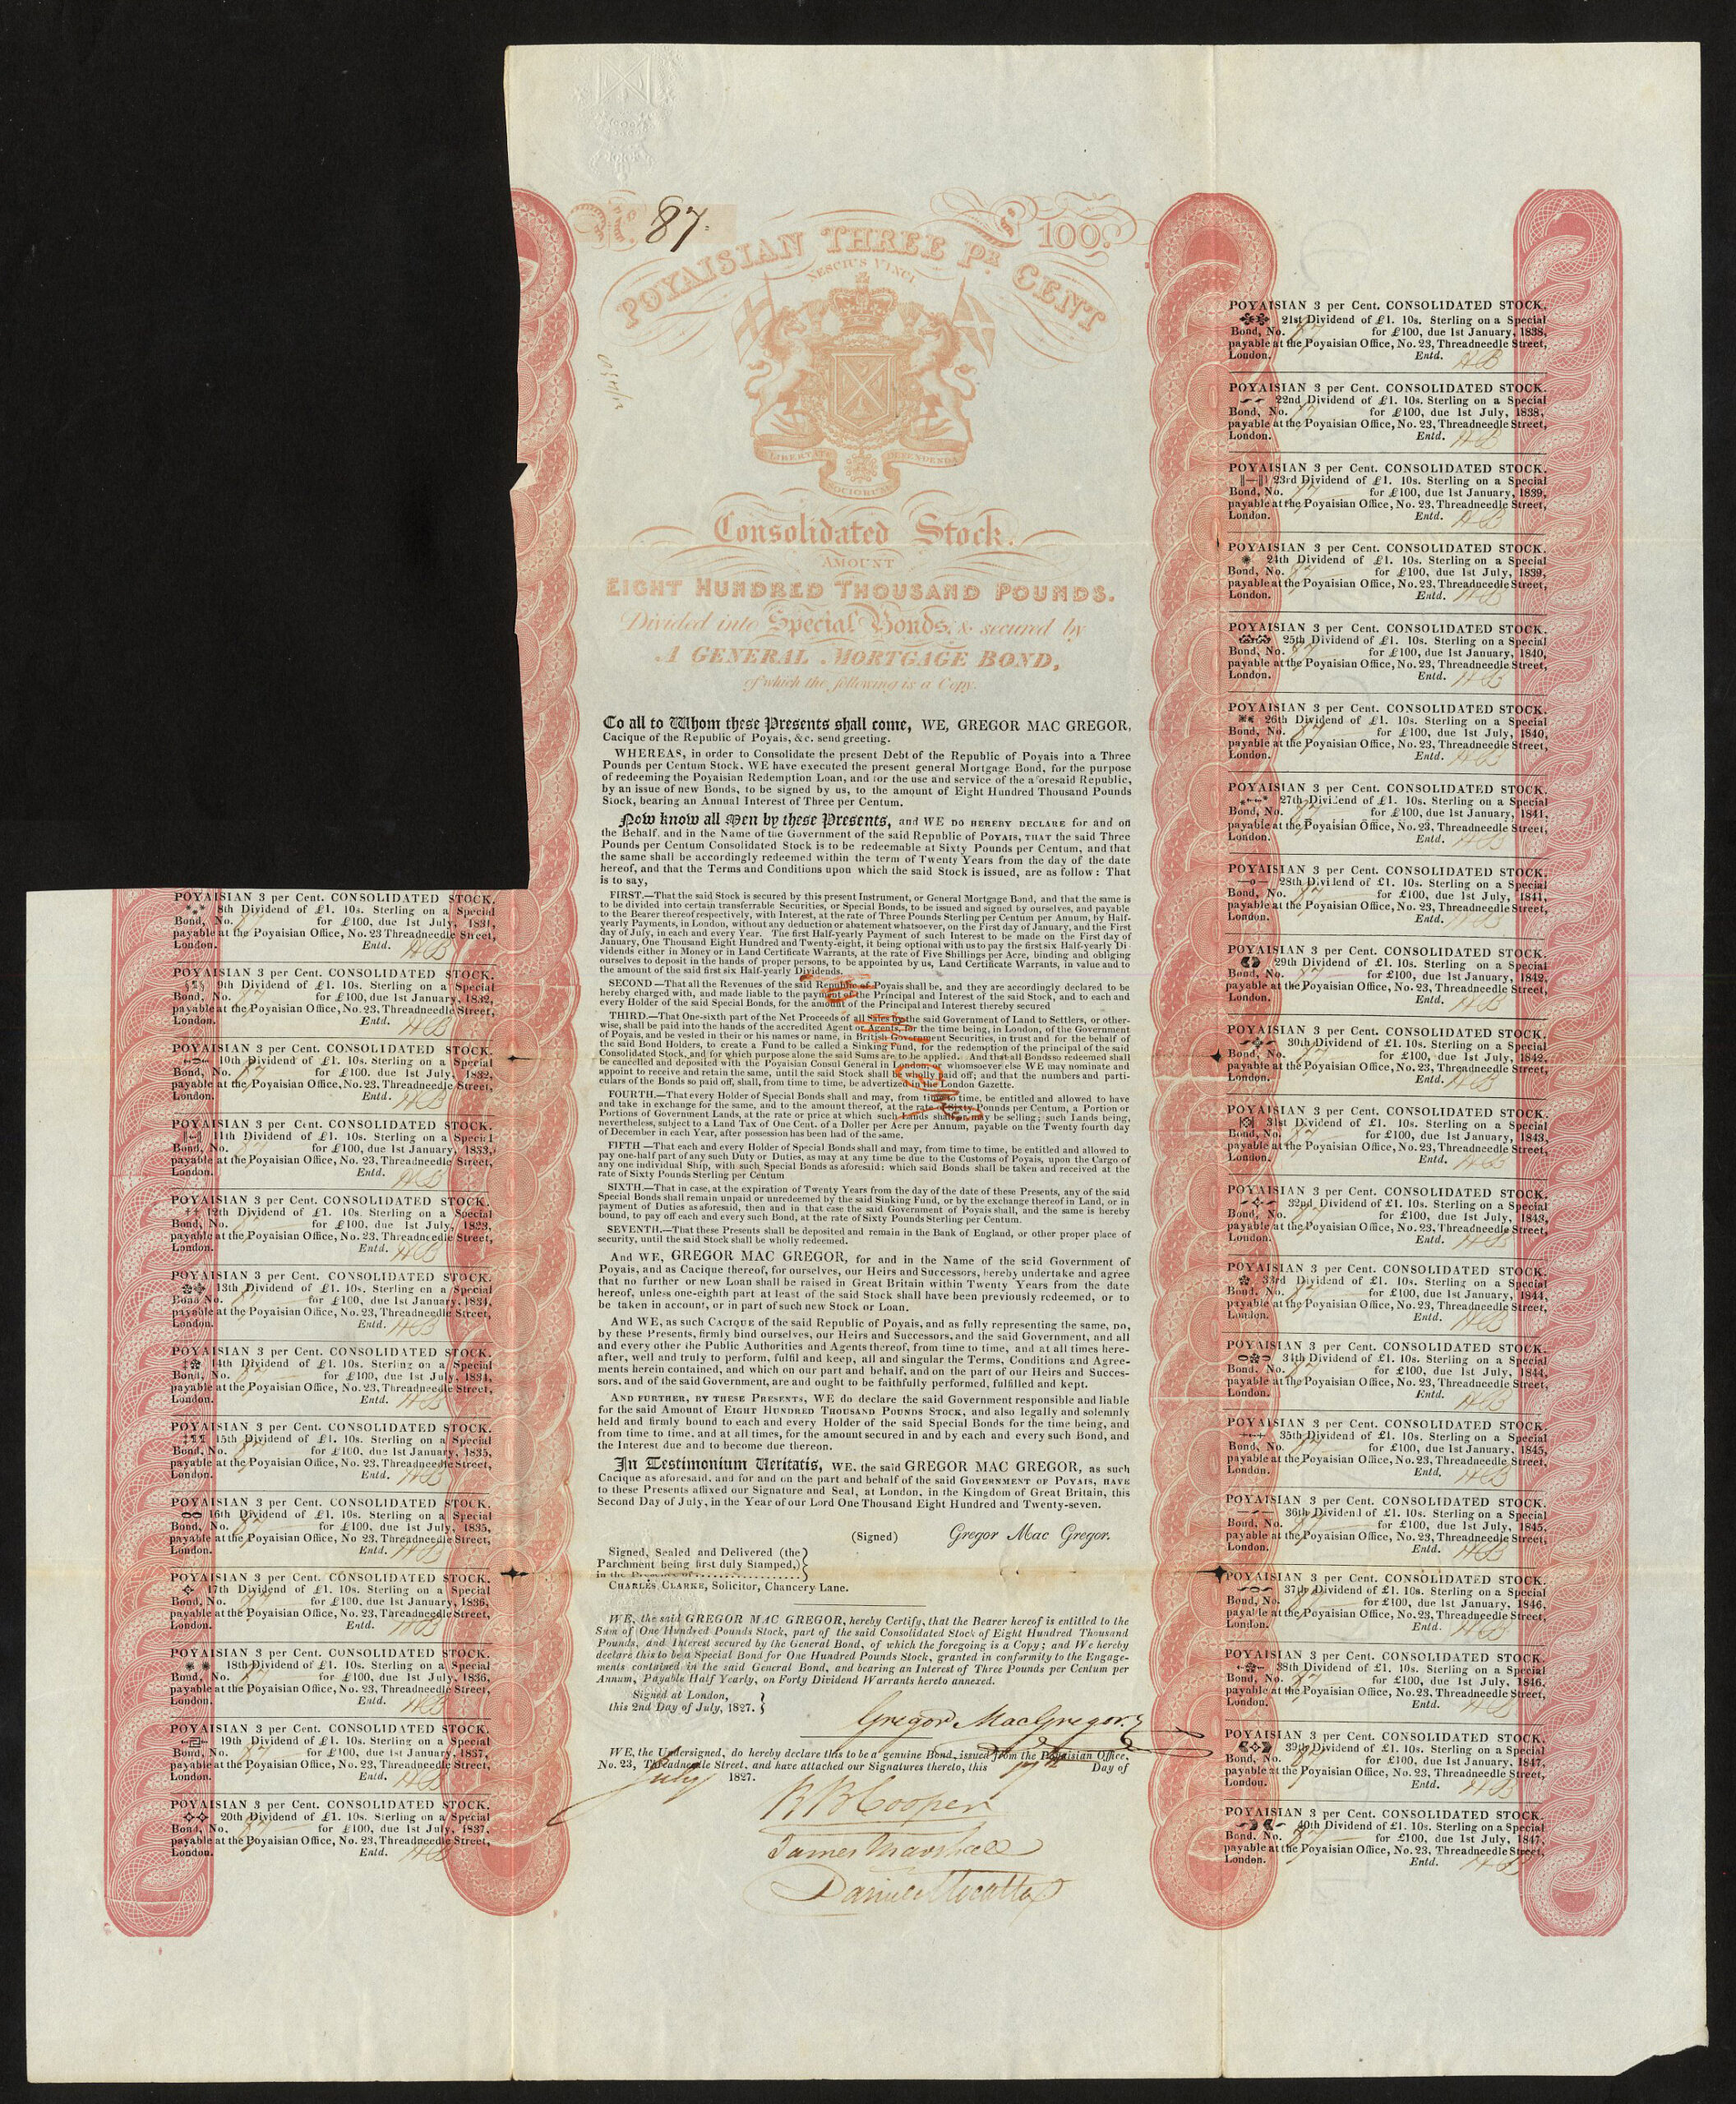 No. 87.
£ 100.
POYAISIAN THREE PR. CENT
NESCIUS VINCI
LIBERTATE DEFENDENDA
SOCIORUM
Consolidated Stock.
AMOUNT
EIGHT HUNDRED THOUSAND POUNDS.
Divided into Special Bonds, & secured by
A GENERAL MORTGAGE BOND,
of which the following is a Copy.
To all to Whom these Presents shall come, WE, GREGOR MAC GREGOR,
Cacique of the Republic of Poyais, &c. send greeting.
WHEREAS, in order to Consolidate the present Debt of the Republic of Poyais into a Three
Pounds per Centum Stock. WE have executed the present general Mortgage Bond, for the purpose
of redeeming the Poyaisian Redemption Loan, and for the use and service of the aforesaid Republic,
by an issue of new Bonds, to be signed by us, to the amount of Eight Hundred Thousand Pounds
Stock, bearing an Annual Interest of Three per Centum.
Now know all Men by these Presents, and WE DO HEREBY DECLARE for and on
the Behalf, and in the Name of the Government of the said Republic of POYAIS, THAT the said Three
Pounds per Centum Consolidated Stock is to be redeemable at Sixty Pounds per Centum, and that
the same shall be accordingly redeemed within the term of Twenty Years from the day of the date
hereof, and that the Terms and Conditions upon which the said Stock is issued, are as follow: That
is to say,
FIRST.—That the said Stock is secured by this present Instrument, or General Mortgage Bond, and that the same is
to be divided into certain transferrable Securities, or Special Bonds, to be issued and signed by ourselves, and payable
to the Bearer thereof respectively, with Interest, at the rate of Three Pounds Sterling per Centum per Annum, by Half-
yearly Payments, in London, without any deduction or abatement whatsoever, on the First day of January, and the First
day of July, in each and every Year. The first Half-yearly Payment of such Interest to be made on the First day of
January, One Thousand Eight Hundred and Twenty-eight, it being optional with us to pay the first six Half-yearly Di-
vidends either in Money or in Land Certificate Warrants, at the rate of Five Shillings per Acre, binding and obliging
ourselves to deposit in the hands of proper persons, to be appointed by us, Land Certificate Warrants, in value and to
the amount of the said first six Half-yearly Dividends.
SECOND—That all the Revenues of the said Republic of Poyais shall be, and they are accordingly declared to be
hereby charged with, and made liable to the payment of the Principal and Interest of the said Stock, and to each and
every Holder of the said Special Bonds, for the amount of the Principal and Interest thereby secured
THIRD.—That One-sixth part of the Net Proceeds of all Sales by the said Government of Land to Settlers, or other-
wise, shall be paid into the hands of the accredited Agent or Agents, for the time being, in London, of the Government
of Poyais, and be vested in their or his names or name, in British Government Securities, in trust and for the behalf of
the said Bond Holders, to create a Fund to be called a Sinking Fund, for the redemption of the principal of the said
Consolidated Stock, and for which purpose alone the said Sums are to be applied. And that all Bonds so redeemed shall
be cancelled and deposited with the Poyaisian Consul General in London, or whomsoever else WE may nominate and
appoint to receive and retain the same, until the said Stock shall be wholly paid off; and that the numbers and parti-
culars of the Bonds so paid off, shall, from time to time, be advertized in the London Gazette.
FOURTH.—That every Holder of Special Bonds shall and may, from time to time, be entitled and allowed to have
and take in exchange for the same, and to the amount thereof, at the rate of Sixty Pounds per Centum, a Portion or
Portions of Government Lands, at the rate or price at which such Lands shall or may be selling; such Lands being,
nevertheless, subject to a Land Tax of One Cent. of a Doller per Acre per Annum, payable on the Twenty fourth day
of December in each Year, after possession has been had of the same.
FIFTH—That each and every Holder of Special Bonds shall and may, from time to time, be entitled and allowed to
pay one-half part of any such Duty or Duties, as may at any time be due to the Customs of Poyais, upon the Cargo of
any one individual Ship, with such Special Bonds as aforesaid: which said Bonds shall be taken and received at the
rate of Sixty Pounds Sterling per Centum
SIXTH.—That in case, at the expiration of Twenty Years from the day of the date of these Presents, any of the said
Special Bonds shall remain unpaid or unredeemed by the said Sinking Fund, or by the exchange thereof in Land, or in
payment of Duties as aforesaid, then and in that case the said Government of Poyais shall, and the same is hereby
bound, to pay off each and every such Bond, at the rate of Sixty Pounds Sterling per Centum.
SEVENTH.—That these Presents shall be deposited and remain in the Bank of England, or other proper place of
security, until the said Stock shall be wholly redeemed.
And WE, GREGOR MAC GREGOR, for and in the Name of the said Government of
Poyais, and as Cacique thereof, for ourselves, our Heirs and Successors, hereby undertake and agree
that no further or new Loan shall be raised in Great Britain within Twenty Years from the date
hereof, unless one-eighth part at least of the said Stock shall have been previously redeemed, or to
be taken in account, or in part of such new Stock or Loan.
And WE, as such CACIQUE of the said Republic of Poyais, and as fully representing the same, DO,
by these Presents, firmly bind ourselves, our Heirs and Successors, and the said Government, and all
and every other the Public Authorities and Agents thereof, from time to time, and at all times here-
after, well and truly to perform, fulfil and keep, all and singular the Terms, Conditions and Agree-
ments herein contained, and which on our part and behalf, and on the part of our Heirs and Succes-
sors, and of the said Government, are and ought to be faithfully performed, fulfilled and kept.
AND FURTHER, BY THESE PRESENTS, WE do declare the said Government responsible and liable
for the said Amount of EIGHT HUNDRED THOUSAND POUNDS STOCK, and also legally and solemnly
held and firmly bound to each and every Holder of the said Special Bonds for the time being, and
from time to time, and at all times, for the amount secured in and by each and every such Bond, and
the Interest due and to become due thereon.
In Testimonium Veritatis, WE, the said GREGOR MAC GREGOR, as such
Cacique as aforesaid, and for and on the part and behalf of the said GOVERNMENT OF POYAIS, HAVE
to these Presents affixed our Signature and Seal, at London, in the Kingdom of Great Britain, this
Second Day of July, in the Year of our Lord One Thousand Eight Hundred and Twenty-seven.
(Signed) Gregor Mac Gregor.
Signed, Sealed and Delivered (the
Parchment being first duly Stamped,)
in the Presence of
CHARLES CLARKE, Solicitor, Chancery Lane.
WE, the said GREGOR MAC GREGOR, hereby Certify, that the Bearer hereof is entitled to the
Sum of One Hundred Pounds Stock, part of the said Consolidated Stock of Eight Hundred Thousand
Pounds, and Interest secured by the General Bond, of which the foregoing is a Copy; and We hereby
declare this to be a Special Bond for One Hundred Pounds Stock, granted in conformity to the Engage-
ments contained in the said General Bond, and bearing an Interest of Three Pounds per Centum per
Annum, Payable Half Yearly, on Forty Dividend Warrants hereto annexed.
Signed at London,
this 2nd Day of July, 1827.
Gregor MacGregor.
WE, the Undersigned, do hereby declare this to be a genuine Bond, issued from the Poyaisian Office,
No. 23, Threadneedle Street, and have attached our Signatures thereto, this Day of
July 1827.
R B Cooper
James Marshall
POYAISIAN 3 per Cent. CONSOLIDATED STOCK.
8th Dividend of £1. 10s. Sterling on a Special
Bond, No. 87 for £100, due 1st July, 1831,
payable at the Poyaisian Office, No. 23 Threadneedle Street,
London. Entd. HB
POYAISIAN 3 per Cent. CONSOLIDATED STOCK.
9th Dividend of £1. 10s. Sterling on a Special
Bond, No. 87 for £100, due 1st January, 1832,
payable at the Poyaisian Office, No. 23, Threadneedle Street,
London. Entd. HB
POYAISIAN 3 per Cent. CONSOLIDATED STOCK.
10th Dividend of £1. 10s. Sterling on a Special
Bond, No. 87 for £100. due 1st July, 1832,
payable at the Poyaisian Office, No. 23, Threadneedle Street,
London. Entd. HB
POYAISIAN 3 per Cent. CONSOLIDATED STOCK.
11th Dividend of £1. 10s. Sterling on a Special
Bond, No. 87 for £100, due 1st January, 1833,
payable at the Poyaisian Office, No. 23, Threadneedle Street,
London. Entd. HB
POYAISIAN 3 per Cent. CONSOLIDATED STOCK.
12th Dividend of £1. 10s. Sterling on a Special
Bond, No. 87 for £100, due 1st July, 1823,
payable at the Poyaisian Office, No. 23, Threadneedle Street,
London. Entd. HB
POYAISIAN 3 per Cent. CONSOLIDATED STOCK.
13th Dividend of £1. 10s. Sterling on a Special
Bond No. 87 for £100, due 1st January, 1834,
payable at the Poyaisian Office, No. 23, Threadneedle Street,
London. Entd. HB
POYAISIAN 3 per Cent. CONSOLIDATED STOCK.
14th Dividend of £1. 10s. Sterling on a Special
Bond, No. 87 for £100, due 1st July, 1834,
payable at the Poyaisian Office, No. 23, Threadneedle Street,
London. Entd. HB
POYAISIAN 3 per Cent. CONSOLIDATED STOCK.
15th Dividend of £1. 10s. Sterling on a Special
Bond, No. 87 for £100, due 1st January, 1835,
payable at the Poyaisian Office, No. 23, Threadneedle Street,
London. Entd. HB
POYAISIAN 3 per Cent. CONSOLIDATED STOCK.
16th Dividend of £1. 10s. Sterling on a Special
Bond, No. 87 for £100, due 1st July, 1835,
payable at the Poyaisian Office, No. 23, Threadneedle Street,
London. Entd. HB
POYAISIAN 3 per Cent. CONSOLIDATED STOCK.
17th Dividend of £1. 10s. Sterling on a Special
Bond, No. 87 for £100, due 1st January, 1836,
payable at the Poyaisian Office, No. 23, Threadneedle Street,
London. Entd. HB
POYAISIAN 3 per Cent. CONSOLIDATED STOCK.
18th Dividend of £1. 10s. Sterling on a Special
Bond, No. 87 for £100, due 1st July, 1836,
payable at the Poyaisian Office, No. 23, Threadneedle Street,
London. Entd. HB
POYAISIAN 3 per Cent. CONSOLIDATED STOCK.
19th Dividend of £1. 10s. Sterling on a Special
Bond, No. 87 for £100, due 1st January, 1837,
payable at the Poyaisian Office, No. 23, Threadneedle Street,
London. Entd. HB
POYAISIAN 3 per Cent. CONSOLIDATED STOCK.
20th Dividend of £1. 10s. Sterling on a Special
Bond, No. 87 for £100, due 1st July, 1837,
payable at the Poyaisian Office, No. 23, Threadneedle Street,
London. Entd. HB
POYAISIAN 3 per Cent. CONSOLIDATED STOCK.
21st Dividend of £1. 10s. Sterling on a Special
Bond, No. 87 for £100, due 1st January, 1838,
payable at the Poyaisian Office, No. 23, Threadneedle Street,
London. Entd. HB
POYAISIAN 3 per Cent. CONSOLIDATED STOCK.
22nd Dividend of £1. 10s. Sterling on a Special
Bond, No. 87 for £100, due 1st July, 1838,
payable at the Poyaisian Office, No. 23, Threadneedle Street,
London. Entd. HB
POYAISIAN 3 per Cent. CONSOLIDATED STOCK.
23rd Dividend of £1. 10s. Sterling on a Special
Bond, No. 87 for £100, due 1st January, 1839,
payable at the Poyaisian Office, No. 23, Threadneedle Street,
London. Entd. HB
POYAISIAN 3 per Cent. CONSOLIDATED STOCK.
24th Dividend of £1. 10s. Sterling on a Special
Bond, No. 87 for £100, due 1st July, 1839,
payable at the Poyaisian Office, No. 23, Threadneedle Street,
London. Entd. HB
POYAISIAN 3 per Cent. CONSOLIDATED STOCK.
25th Dividend of £1. 10s. Sterling on a Special
Bond, No. 87 for £100, due 1st January, 1840,
payable at the Poyaisian Office, No. 23, Threadneedle Street,
London. Entd. HB
POYAISIAN 3 per Cent. CONSOLIDATED STOCK.
26th Dividend of £1. 10s. Sterling on a Special
Bond, No. 87 for £100, due 1st July, 1840,
payable at the Poyaisian Office, No. 23, Threadneedle Street,
London. Entd. HB
POYAISIAN 3 per Cent. CONSOLIDATED STOCK.
27th Dividend of £1. 10s. Sterling on a Special
Bond, No. 87 for £100, due 1st January, 1841,
payable at the Poyaisian Office, No. 23, Threadneedle Street,
London. Entd. HB
POYAISIAN 3 per Cent. CONSOLIDATED STOCK.
28th Dividend of £1. 10s. Sterling on a Special
Bond, No. 87 for £100, due 1st July, 1841,
payable at the Poyaisian Office, No. 23, Threadneedle Street,
London. Entd. HB
POYAISIAN 3 per Cent. CONSOLIDATED STOCK.
29th Dividend of £1. 10s. Sterling on a Special
Bond, No. 87 for £100, due 1st January, 1842,
payable at the Poyaisian Office, No. 23, Threadneedle Street,
London. Entd. HB
POYAISIAN 3 per Cent. CONSOLIDATED STOCK.
30th Dividend of £1. 10s. Sterling on a Special
Bond, No. 87 for £100, due 1st July, 1842,
payable at the Poyaisian Office, No. 23, Threadneedle Street,
London. Entd. HB
POYAISIAN 3 per Cent. CONSOLIDATED STOCK.
31st Dividend of £1. 10s. Sterling on a Special
Bond, No. 87 for £100, due 1st January, 1843,
payable at the Poyaisian Office, No. 23, Threadneedle Street,
London. Entd. HB
POYAISIAN 3 per Cent. CONSOLIDATED STOCK.
32nd Dividend of £1. 10s. Sterling on a Special
Bond, No. 87 for £100, due 1st July, 1843,
payable at the Poyaisian Office, No. 23, Threadneedle Street,
London. Entd. HB
POYAISIAN 3 per Cent. CONSOLIDATED STOCK.
33rd Dividend of £1. 10s. Sterling on a Special
Bond, No. 87 for £100, due 1st January, 1844,
payable at the Poyaisian Office, No. 23, Threadneedle Street,
London. Entd. HB
POYAISIAN 3 per Cent. CONSOLIDATED STOCK.
34th Dividend of £1. 10s. Sterling on a Special
Bond, No. 87 for £100, due 1st July, 1844,
payable at the Poyaisian Office, No. 23, Threadneedle Street,
London. Entd. HB
POYAISIAN 3 per Cent. CONSOLIDATED STOCK.
35th Dividend of £1. 10s. Sterling on a Special
Bond, No. 87 for £100, due 1st January, 1845,
payable at the Poyaisian Office, No. 23, Threadneedle Street,
London. Entd. HB
POYAISIAN 3 per Cent. CONSOLIDATED STOCK.
36th Dividend of £1. 10s. Sterling on a Special
Bond, No. 87 for £100, due 1st July, 1845,
payable at the Poyaisian Office, No. 23, Threadneedle Street,
London. Entd. HB
POYAISIAN 3 per Cent. CONSOLIDATED STOCK.
37th Dividend of £1. 10s. Sterling on a Special
Bond, No. 87 for £100, due 1st January, 1846,
payable at the Poyaisian Office, No. 23, Threadneedle Street,
London. Entd. HB
POYAISIAN 3 per Cent. CONSOLIDATED STOCK.
38th Dividend of £1. 10s. Sterling on a Special
Bond, No. 87 for £100, due 1st July, 1846,
payable at the Poyaisian Office, No. 23, Threadneedle Street,
London. Entd. HB
POYAISIAN 3 per Cent. CONSOLIDATED STOCK.
39th Dividend of £1. 10s. Sterling on a Special
Bond, No. 87 for £100, due 1st January, 1847,
payable at the Poyaisian Office, No. 23, Threadneedle Street,
London. Entd. HB
POYAISIAN 3 per Cent. CONSOLIDATED STOCK.
40th Dividend of £1. 10s. Sterling on a Special
Bond, No. 87 for £100, due 1st July, 1847,
payable at the Poyaisian Office, No. 23, Threadneedle Street,
London. Entd. HB